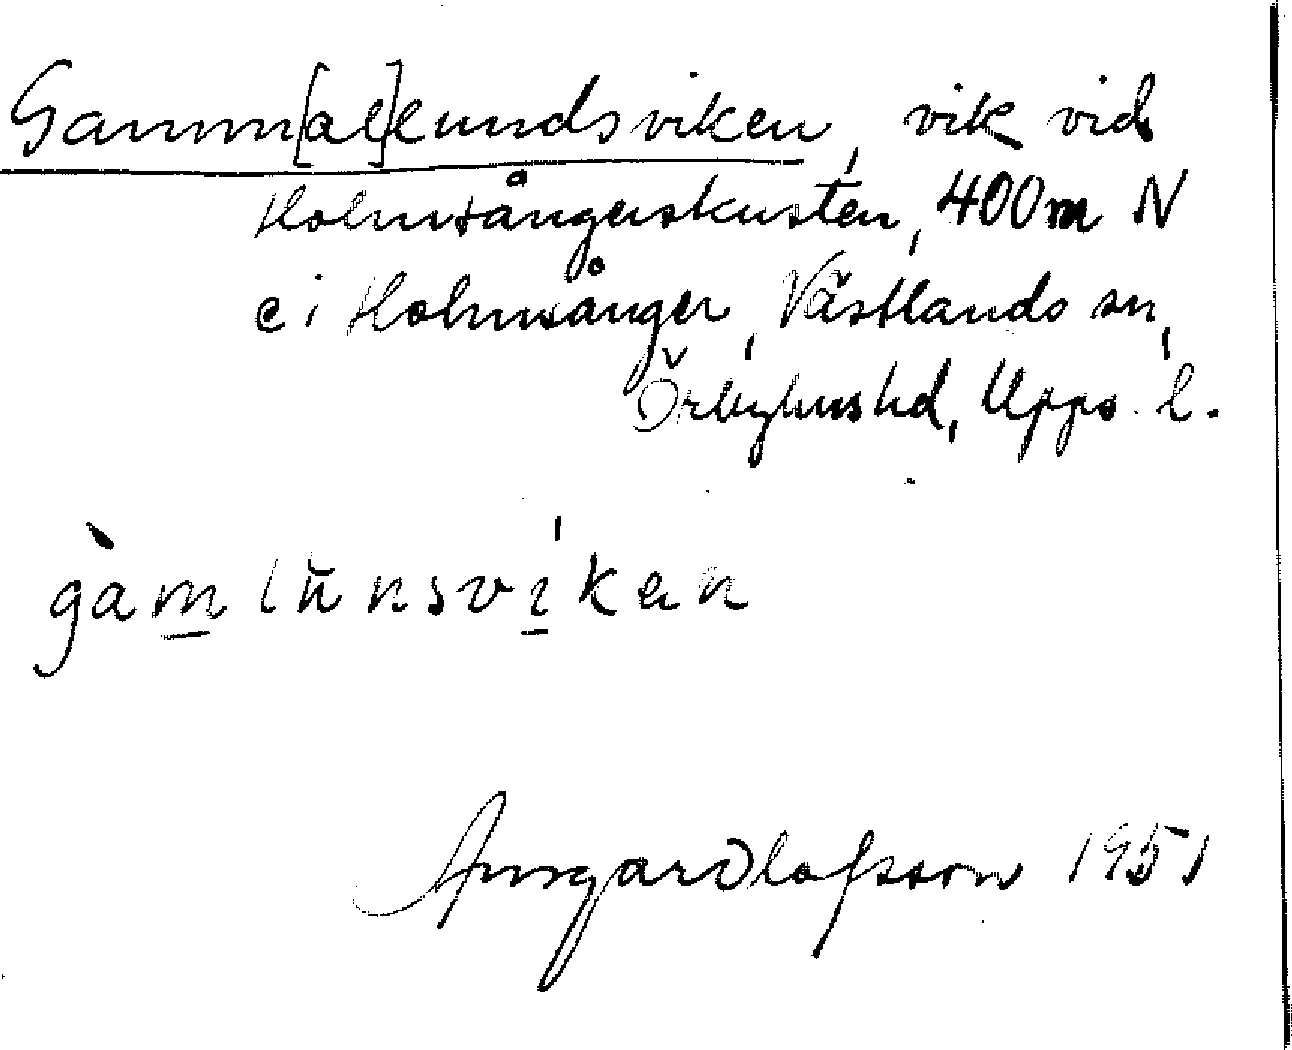 Gamm[al]lundsviken, vik vid
Holmsångerskusten, 400 m N
c i Holmsånger, Västlands sn,
Örbyhus hd, Upps. l.
gàmlŭnsvíkan
Ansgar Olofsson 1951